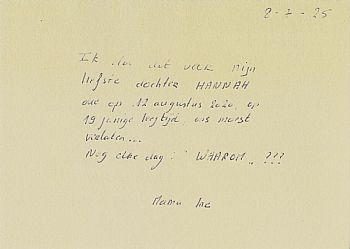 2-7-25
Ik doe dat voor mijn
liefste dochter HANNAH
die op 12 augustus 2020, op
19 jarige leeftijd, ons moest
verlaten...
Nog elke dag: "WAAROM"???
Mama